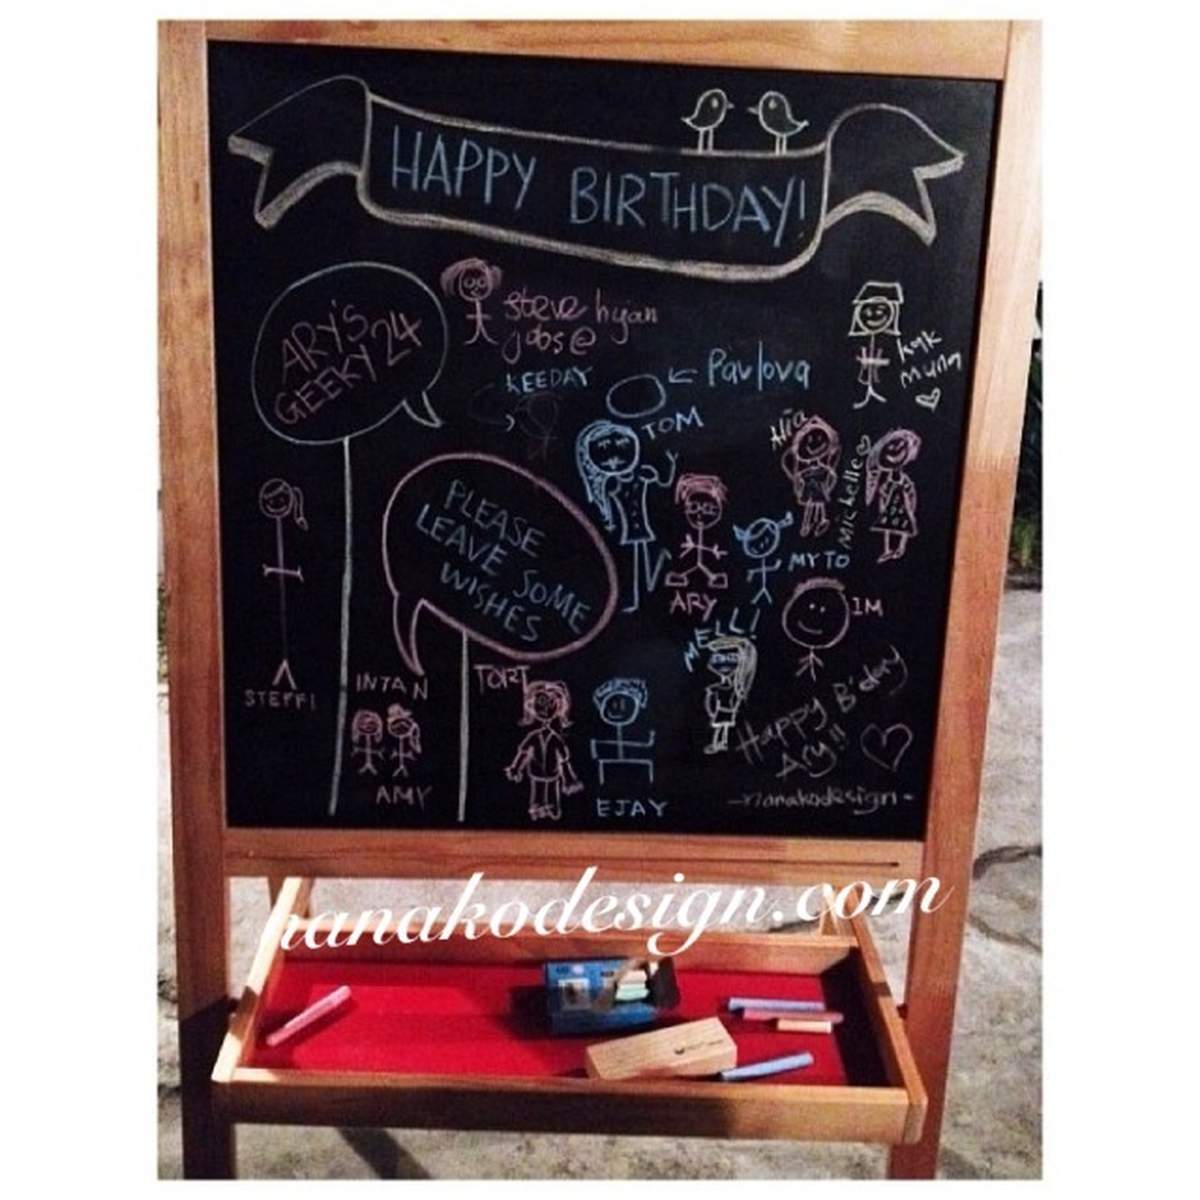 HAPPY BIRTHDAY!
ARY'S
GEEKY 24
steve hyjan
jobs@
KEEDAY
Pavlova
TOM
kak
muna
Alia
Michelle
PLEASE
LEAVE SOME
WISHES
MYTO
ARY
IM
MELL!
STEFFI
INTAN
TORT
AMY
EJAY
Happy B'day
Ary!!
-nanakodesign-
hanakodesign.com